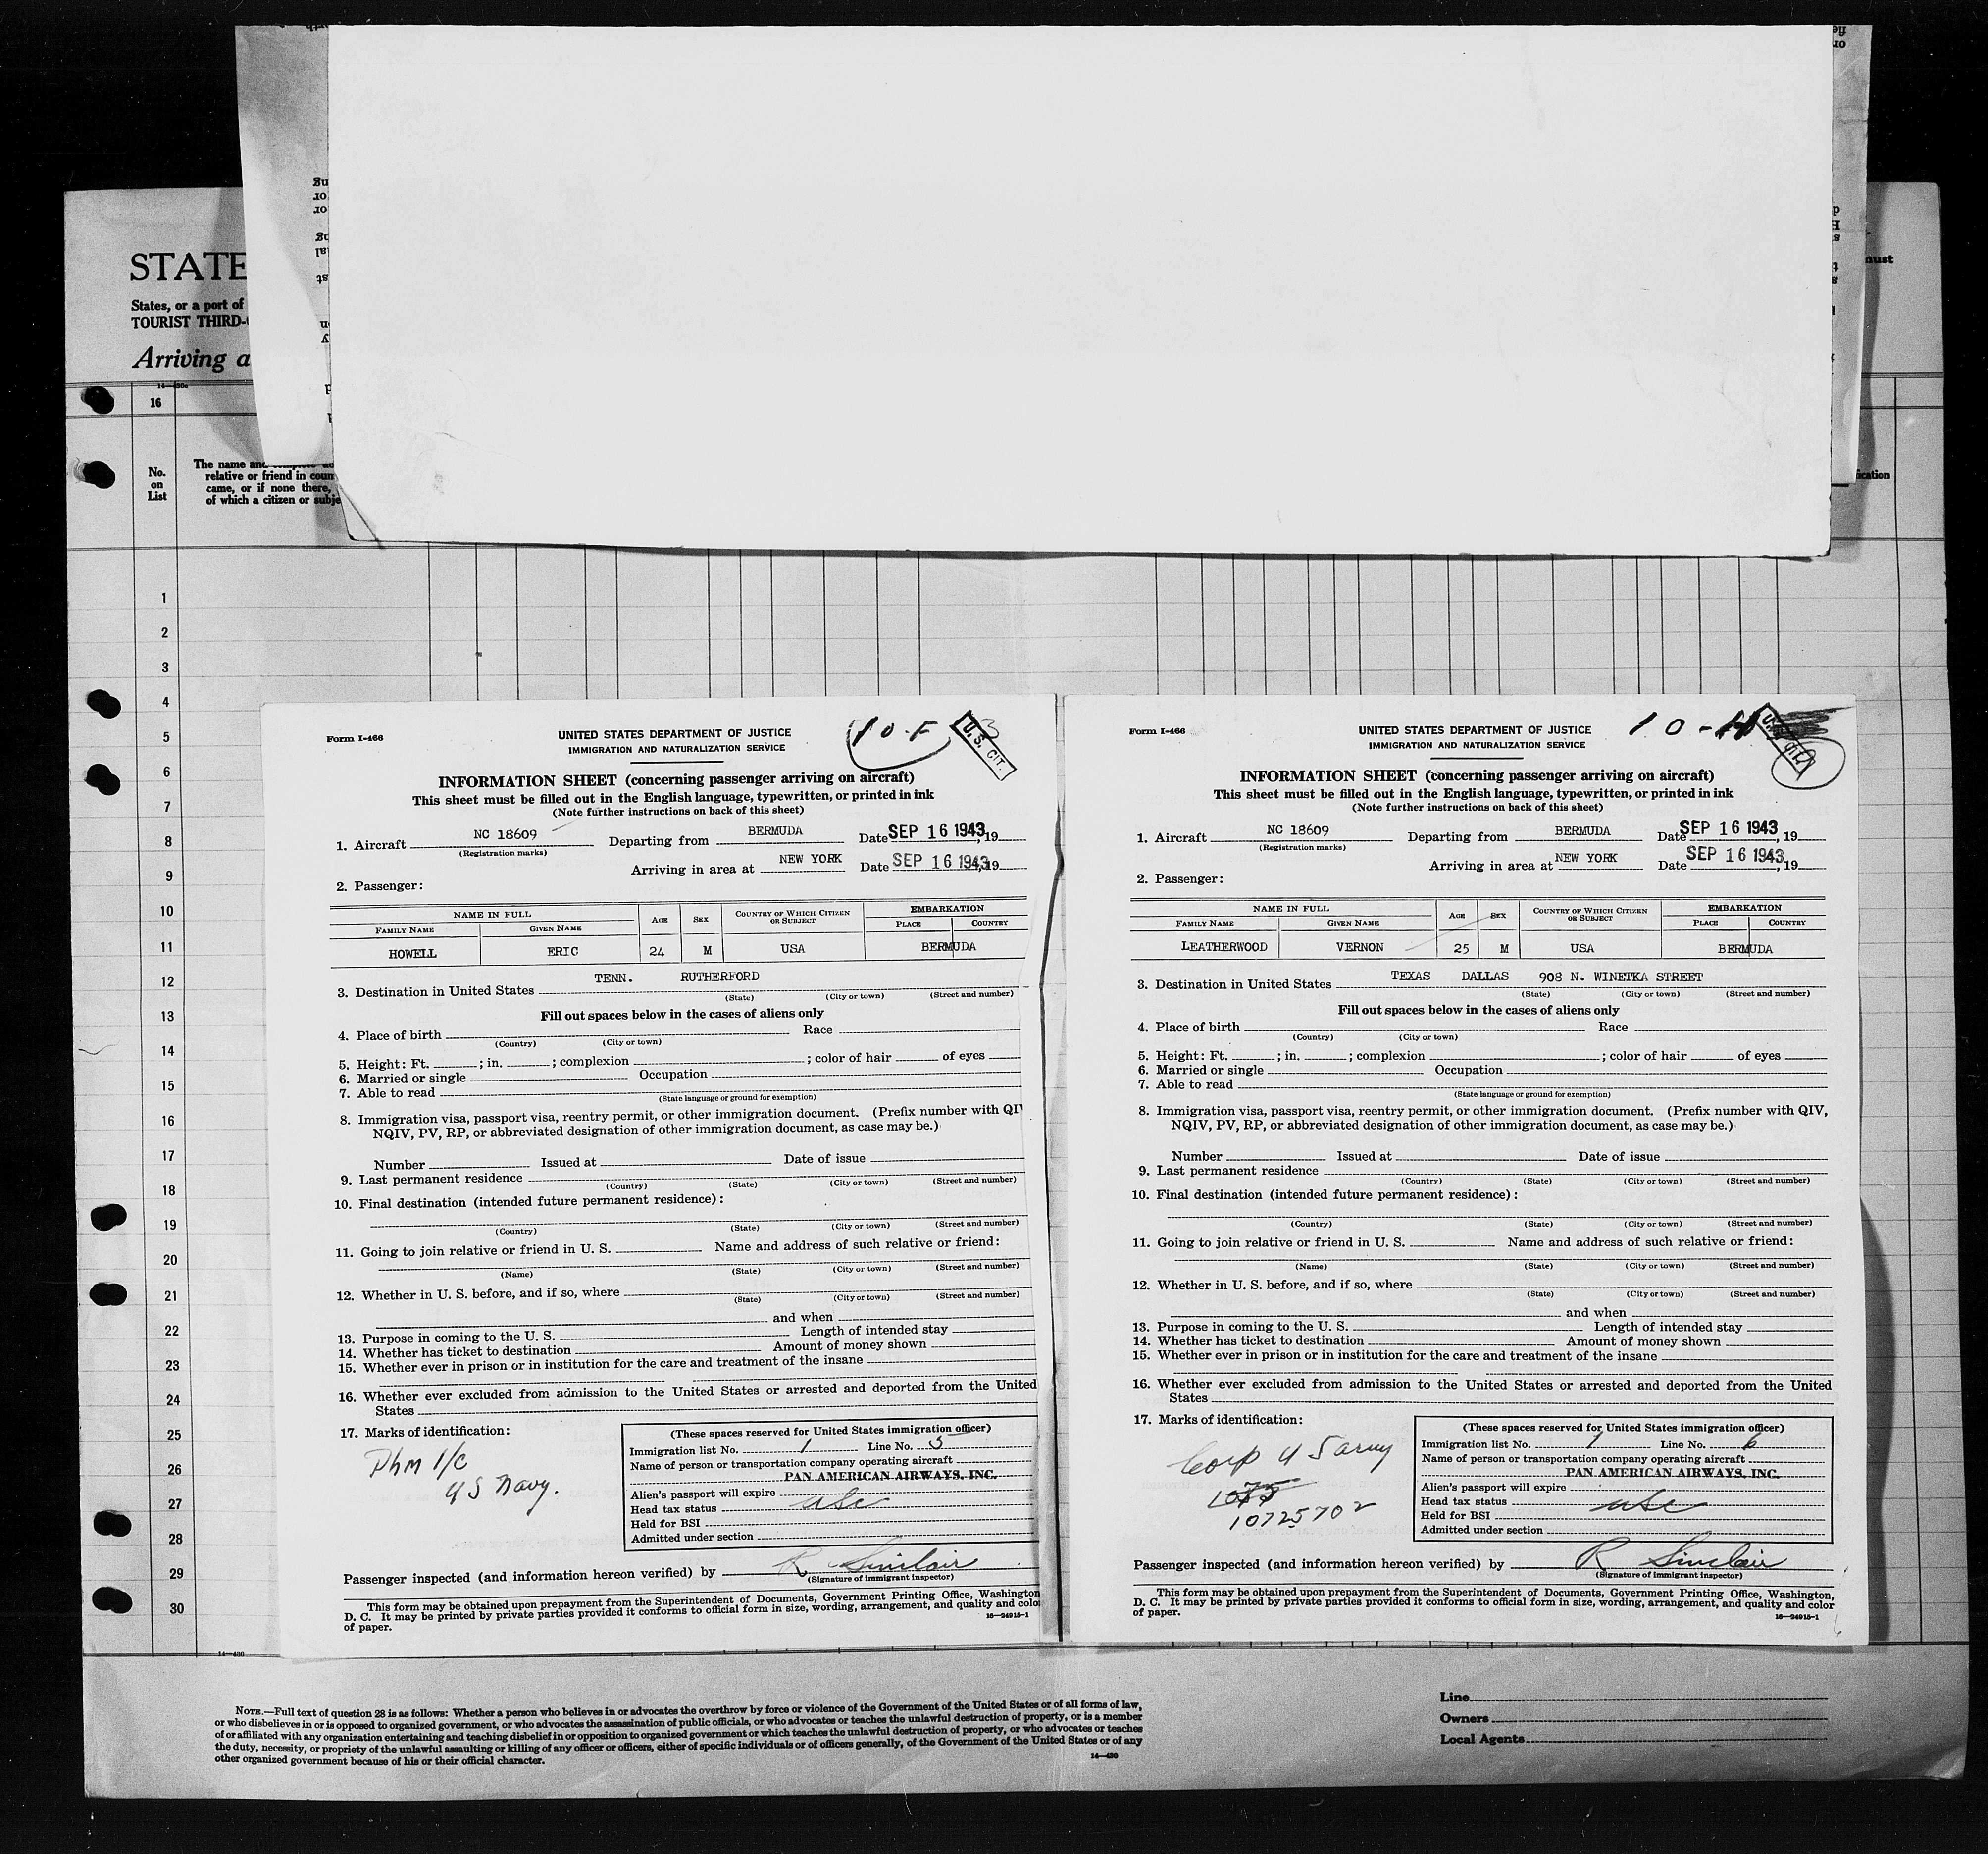 STATE
States, or a port of
TOURIST THIRD-
Arriving a
must
16
No.
on
List
The name and complete
relative or friend in coun
came, or if none there,
of which a citizen or subje
1
2
3
4
5
6
7
8
9
10
11
12
13
14
15
16
17
18
19
20
21
22
23
24
25
26
27
28
29
30
14—430
Form I-466
10-F
3
U. S. CIT.
UNITED STATES DEPARTMENT OF JUSTICE
IMMIGRATION AND NATURALIZATION SERVICE
INFORMATION SHEET (concerning passenger arriving on aircraft)
This sheet must be filled out in the English language, typewritten, or printed in ink
(Note further instructions on back of this sheet)
1. Aircraft NC 18609 Departing from BERMUDA Date SEP 16 1943, 19
(Registration marks)
Arriving in area at NEW YORK Date SEP 16 1943, 19
2. Passenger:
NAME IN FULL AGE SEX COUNTRY OF WHICH CITIZEN OR SUBJECT EMBARKATION
FAMILY NAME GIVEN NAME PLACE COUNTRY
HOWELL ERIC 24 M USA BERMUDA
3. Destination in United States TENN. RUTHERFORD
(State) (City or town) (Street and number)
Fill out spaces below in the cases of aliens only
4. Place of birth Race
(Country) (City or town)
5. Height: Ft. ; in. ; complexion ; color of hair of eyes
6. Married or single Occupation
7. Able to read
(State language or ground for exemption)
8. Immigration visa, passport visa, reentry permit, or other immigration document. (Prefix number with QIV
NQIV, PV, RP, or abbreviated designation of other immigration document, as case may be.)
Number Issued at Date of issue
9. Last permanent residence
(Country) (State) (City or town) (Street and number)
10. Final destination (intended future permanent residence):
(Country) (State) (City or town) (Street and number)
11. Going to join relative or friend in U. S. Name and address of such relative or friend:
(Name) (State) (City or town) (Street and number)
12. Whether in U. S. before, and if so, where
(State) (City or town) (Street and number)
and when
13. Purpose in coming to the U. S. Length of intended stay
14. Whether has ticket to destination Amount of money shown
15. Whether ever in prison or in institution for the care and treatment of the insane
16. Whether ever excluded from admission to the United States or arrested and deported from the United
States
17. Marks of identification:
Phm 1/c
US Navy.
(These spaces reserved for United States immigration officer)
Immigration list No. 1 Line No. 5
Name of person or transportation company operating aircraft
PAN AMERICAN AIRWAYS, INC.
Alien's passport will expire
Head tax status usc
Held for BSI
Admitted under section
Passenger inspected (and information hereon verified) by R Sinclair
(Signature of immigrant inspector)
This form may be obtained upon prepayment from the Superintendent of Documents, Government Printing Office, Washington
D. C. It may be printed by private parties provided it conforms to official form in size, wording, arrangement, and quality and color
of paper.
16—24915-1
Form I-466
10-H
U. S. CIT.
UNITED STATES DEPARTMENT OF JUSTICE
IMMIGRATION AND NATURALIZATION SERVICE
INFORMATION SHEET (concerning passenger arriving on aircraft)
This sheet must be filled out in the English language, typewritten, or printed in ink
(Note further instructions on back of this sheet)
1. Aircraft NC 18609 Departing from BERMUDA Date SEP 16 1943, 19
(Registration marks)
Arriving in area at NEW YORK Date SEP 16 1943, 19
2. Passenger:
NAME IN FULL AGE SEX COUNTRY OF WHICH CITIZEN OR SUBJECT EMBARKATION
FAMILY NAME GIVEN NAME PLACE COUNTRY
LEATHERWOOD VERNON 25 M USA BERMUDA
3. Destination in United States TEXAS DALLAS 908 N. WINETKA STREET
(State) (City or town) (Street and number)
Fill out spaces below in the cases of aliens only
4. Place of birth Race
(Country) (City or town)
5. Height: Ft. ; in. ; complexion ; color of hair of eyes
6. Married or single Occupation
7. Able to read
(State language or ground for exemption)
8. Immigration visa, passport visa, reentry permit, or other immigration document. (Prefix number with QIV,
NQIV, PV, RP, or abbreviated designation of other immigration document, as case may be.)
Number Issued at Date of issue
9. Last permanent residence
(Country) (State) (City or town) (Street and number)
10. Final destination (intended future permanent residence):
(Country) (State) (City or town) (Street and number)
11. Going to join relative or friend in U. S. Name and address of such relative or friend:
(Name) (State) (City or town) (Street and number)
12. Whether in U. S. before, and if so, where
(State) (City or town) (Street and number)
and when
13. Purpose in coming to the U. S. Length of intended stay
14. Whether has ticket to destination Amount of money shown
15. Whether ever in prison or in institution for the care and treatment of the insane
16. Whether ever excluded from admission to the United States or arrested and deported from the United
States
17. Marks of identification:
Corp U S army
10725702
(These spaces reserved for United States immigration officer)
Immigration list No. 1 Line No. 6
Name of person or transportation company operating aircraft
PAN AMERICAN AIRWAYS, INC.
Alien's passport will expire
Head tax status usc
Held for BSI
Admitted under section
Passenger inspected (and information hereon verified) by R Sinclair
(Signature of immigrant inspector)
This form may be obtained upon prepayment from the Superintendent of Documents, Government Printing Office, Washington,
D. C. It may be printed by private parties provided it conforms to official form in size, wording, arrangement, and quality and color
of paper.
16—24915-1
NOTE.—Full text of question 28 is as follows: Whether a person who believes in or advocates the overthrow by force or violence of the Government of the United States or of all forms of law,
or who disbelieves in or is opposed to organized government, or who advocates the assassination of public officials, or who advocates or teaches the unlawful destruction of property, or is a member
of or affiliated with any organization entertaining and teaching disbelief in or opposition to organized government or which teaches the unlawful destruction of property, or who advocates or teaches
the duty, necessity, or propriety of the unlawful assaulting or killing of any officer or officers, either of specific individuals or of officers generally, of the Government of the United States or of any
other organized government because of his or their official character.
14—430
Line
Owners
Local Agents